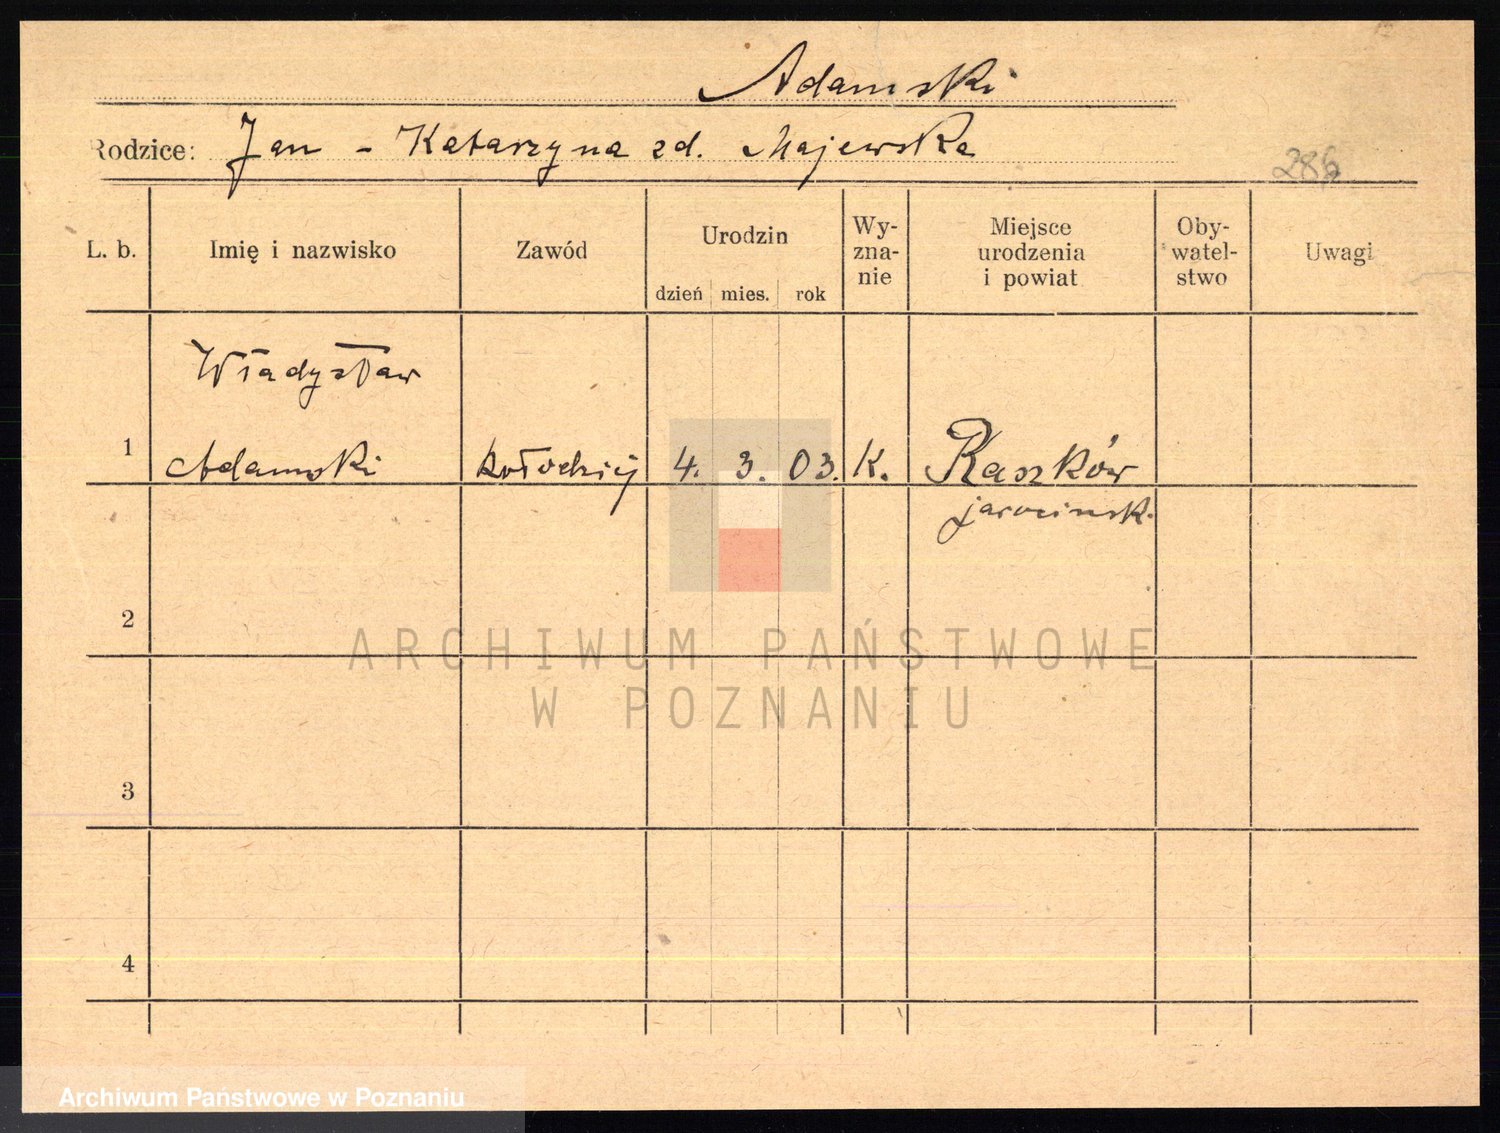 Adamski
Rodzice: Jan - Katarzyna zd. Majewska
286
L. b.
Imię i nazwisko
Zawód
Urodzin
dzień mies. rok
Wy-
zna-
nie
Miejsce
urodzenia
i powiat
Oby-
watel-
stwo
Uwagi
Władysław
1 Adamski kołodziej 4. 3. 03. K. Raszków
jarocinsk.
2
ARCHIWUM PAŃSTWOWE
W POZNANIU
3
4
Archiwum Państwowe w Poznaniu